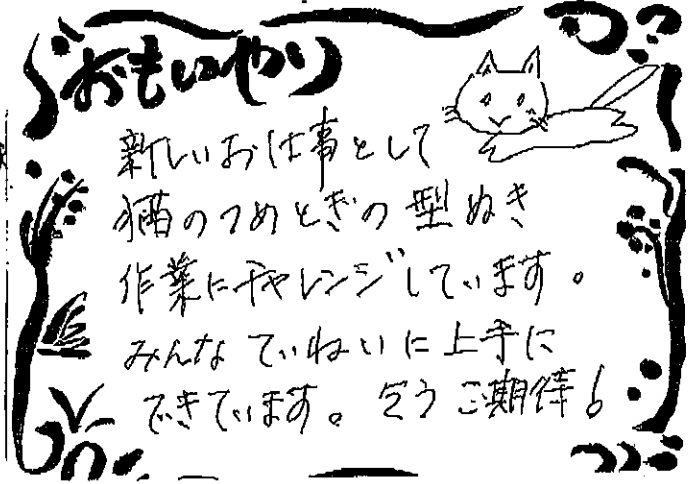 おもいやり
新しいお仕事として
猫のつめとぎの型ぬき
作業にチャレンジしています。
みんなていねいに上手に
できています。乞うご期待!